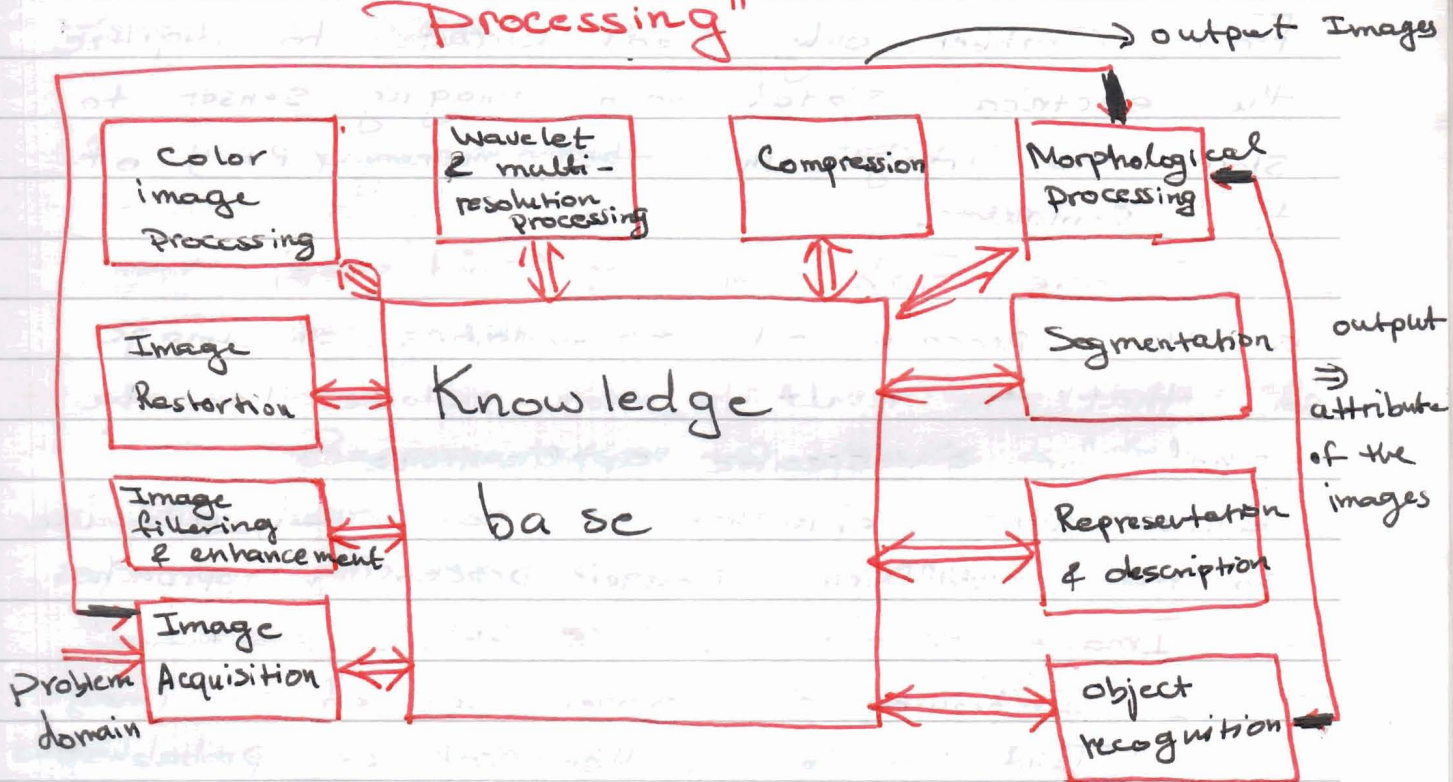 Processing"
output Images
Color
image
Processing
Wavelet
& multi-
resolution
processing
Compression
Morphological
Processing
Image
Restortion
Knowledge
base
Segmentation
output
⇒
attribute
of the
images
Image
filtering
& enhancement
Representation
& description
Image
Acquisition
Problem
domain
object
recognition